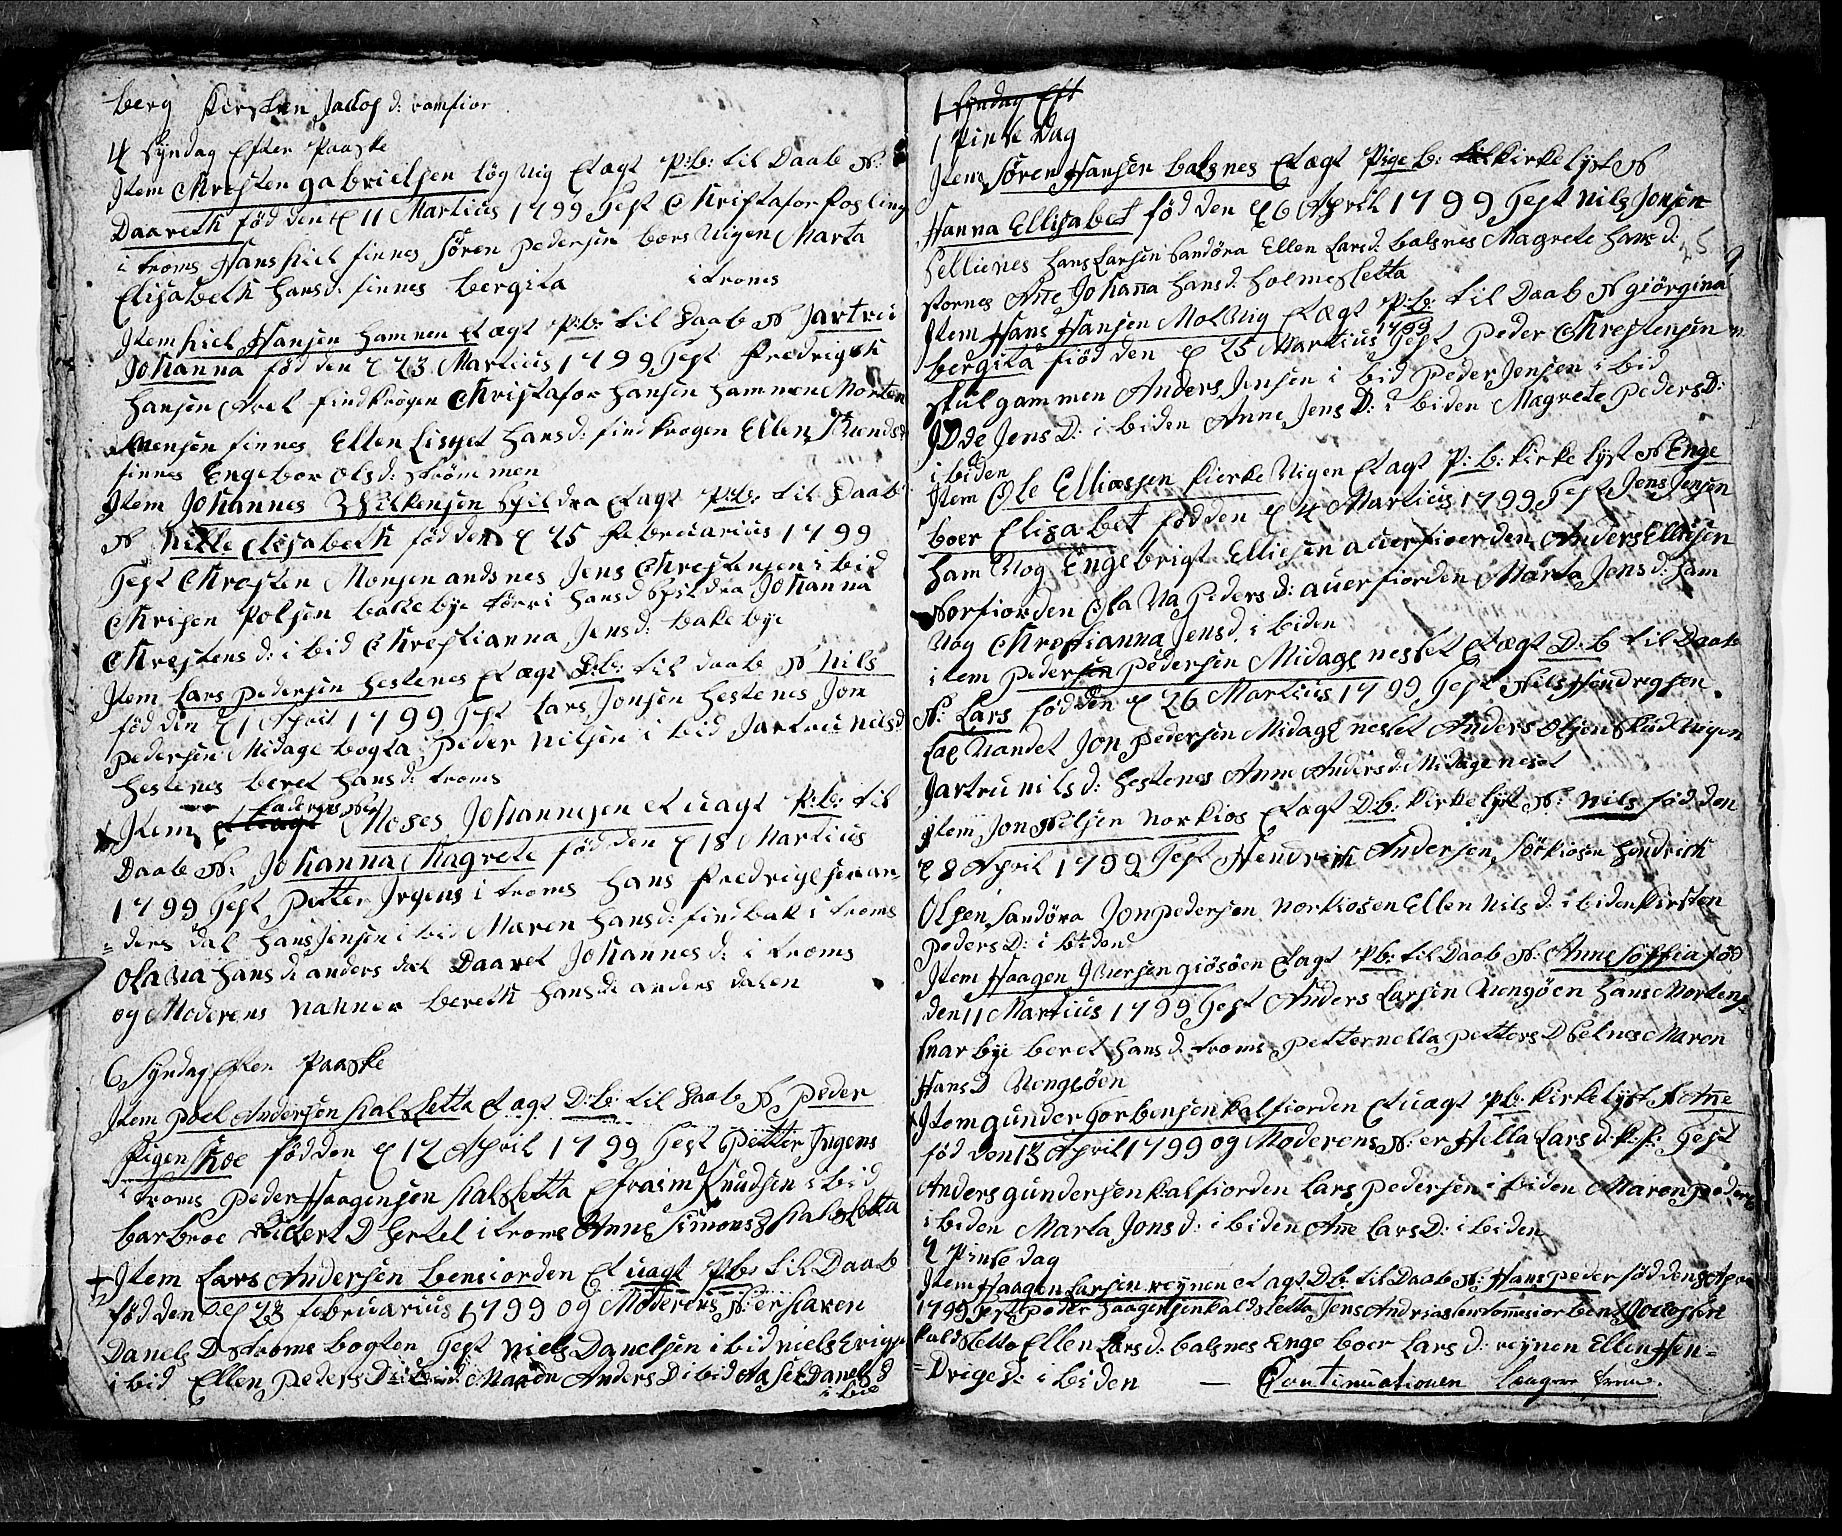 berg Kirsten Jacos d: ramfior
4 Syndag Efter Paaske
Item Chresten gabrielsen løg Uig Etagt P:b: til Daab N:
Daareth fød den 11 Martius 1799 Test Christafor fosling
i troms Hans Kiel finnes Søren Pedersen bers Uigen Marta
Elisabeth Hansd: finnes bergita i troms
Item Kiel Hansen Hamnen Etægt P:b: til Daab N Jartru
Johanna fød den 23 Martius 1799 Test Fredrigh
Hansen Arel findkrogen Christafor Hansen Hamnen Morten
Monsen finnes Ellen Lisbet Hansd: findkrogen Ellen
finnes Engebor Olsd: Strømmen
Item Johannes Hilkensen Spildra Etagt P:b: til Daab
N Nille Elisabeth fød den 25 Februarius 1799
Test Chresten Monsen andsnes Jens Chrestensen i bid
Chrisen Polsen bakkebye Hansd Spildra Johanna
Chrestensd: i bid Chrestianna Jensd: bakebye
Item Lars Pedersen Hestenes Etægt D:b: til daab N Nils
fød den 1 April 1799 Test Lars Jonsen Hestenes Jon
Pedersen Midage bogta Peder Nilsen i bid Jartru Nilsd
Hestenes beret Hansd: troms
Faderens Nafn
Item Moses Johannesen et uagt P:b: til
Daab N: Johanna Magrete fød den 18 Martius
1799 Test Petter Irgens i troms Hans Fredrigsen an-
=ders dal Hans Jensen i bid Maren Hansd: findbak i troms
Olava Hansd: anders dal Daaret Johannesd: i troms
og Moderens nahner bereth Hansd: anders dalen
6 Syndag Efter Paaske
Item Poel Andersen Kalsletta Etagt D:b: til Daab N Peder
Figenschoe fød den 12 April 1799 Test Petter Irgens
i troms Peder Haagensen Kalsletta Efraim Knudsen i bid
barbroe D Hertel i troms Anne Simons D Kalsletta
+ Item Lars Andersen benciorden Et uagt P:b: til Daab
fød den 23 Februarius 1799 og Moderens N: er Karen
Danels D Stroms bogten Test Niels Danelsen i bid Niels Erigs
i bid Ellen Peders D i bid: Maren Anders D i bid Asel Danels D
i bid
1 Syndag Eft
1 Pinse Dag
Item Søren Hansen balsnes Etægt Pige b: til kirkelyst N
Hanna Ellisabet fød den 6 April 1799 Test Nils Jonsen
Sellienes Hans Larsen Sandøra Ellen Larsd: balsnes Magrete Hansd:
stornes Ane Johanna Hansd: Holmesletta
Item Hans Hansen Molvig Etægt P:b: til Daab N giørgina
bergita fiød den 25 Martius 1799 Test Peder Chrestensen
Skulgammen Anders Jensen i bid Peder Jensen i bid
Idde Jens D: i biden Anne Jens D: i biden Magrete Peders D:
i biden
Item Ole Elliassen Kierke Uigen Etagt P:b: kirkelyst N Enge
boer Elisabet fød den 4 Martius 1799 Test Jens Jensen
Ham Uog Engebrigt Elliesen auerfiorden Anders Elliesen
Norfiorden Ola Na Peders D: auerfiorden Marta Jensd: Ham
Uog Chrestianna Jensd: i biden
item Peder Pedersen Midagsneset Etægt D:b til Daab
N: Lars fød den 26 Martius 1799 Test Nils Hendrigsen
Lae vandet Jon Pedersen Midagsneset Anders Olsen Skudvigen
Jartru nilsd: Hestenes Anne Andersd: Midageneset
Item Jon Nilsen Norkios Etagt D:b: kirkelyst N: Nils fød den
28 April 1799 Test Hendrich Andersen Sørkiosen Hendrich
Olsen Sandøra Jon Pedersen Norkiosen Ellen Nilsd: i biden Kirsten
Peders D: i biden
Item Haagen Iversen giøsøen Etagt P:b: til Daab N: Anne Soffia fød
den 11 Martius 1799 Test Anders Larsen Uengsøen Hans Mortens
Snarbye beret Hansd: troms Petternella Petters D Selnes Maren
Hans D Uengsøen
Item gunder Torbensen Kalfiorden Et uægt P:b: kirkelyst N Ane
fød den 13 April 1799 og Moderens N: er Hella Larsd: Test
Anders gundersen Kalfiorden Lars Pedersen i biden Maren Peders
i biden Marta Jonsd: i biden Ane Lars D: i biden
2 Pinse dag
Item Haagen Larsen reynen etagt D:b: til Daab N: Hans Peder fød den 8 Apr
1799 Test Peder Haagensen Kaldsletta Jens Andreasen
Kaldsletta Ellen Larsd: balsnes Engeboer Larsd: reynen Ellen Hen=
=Drigsd: i biden — Continuationen længere frem.